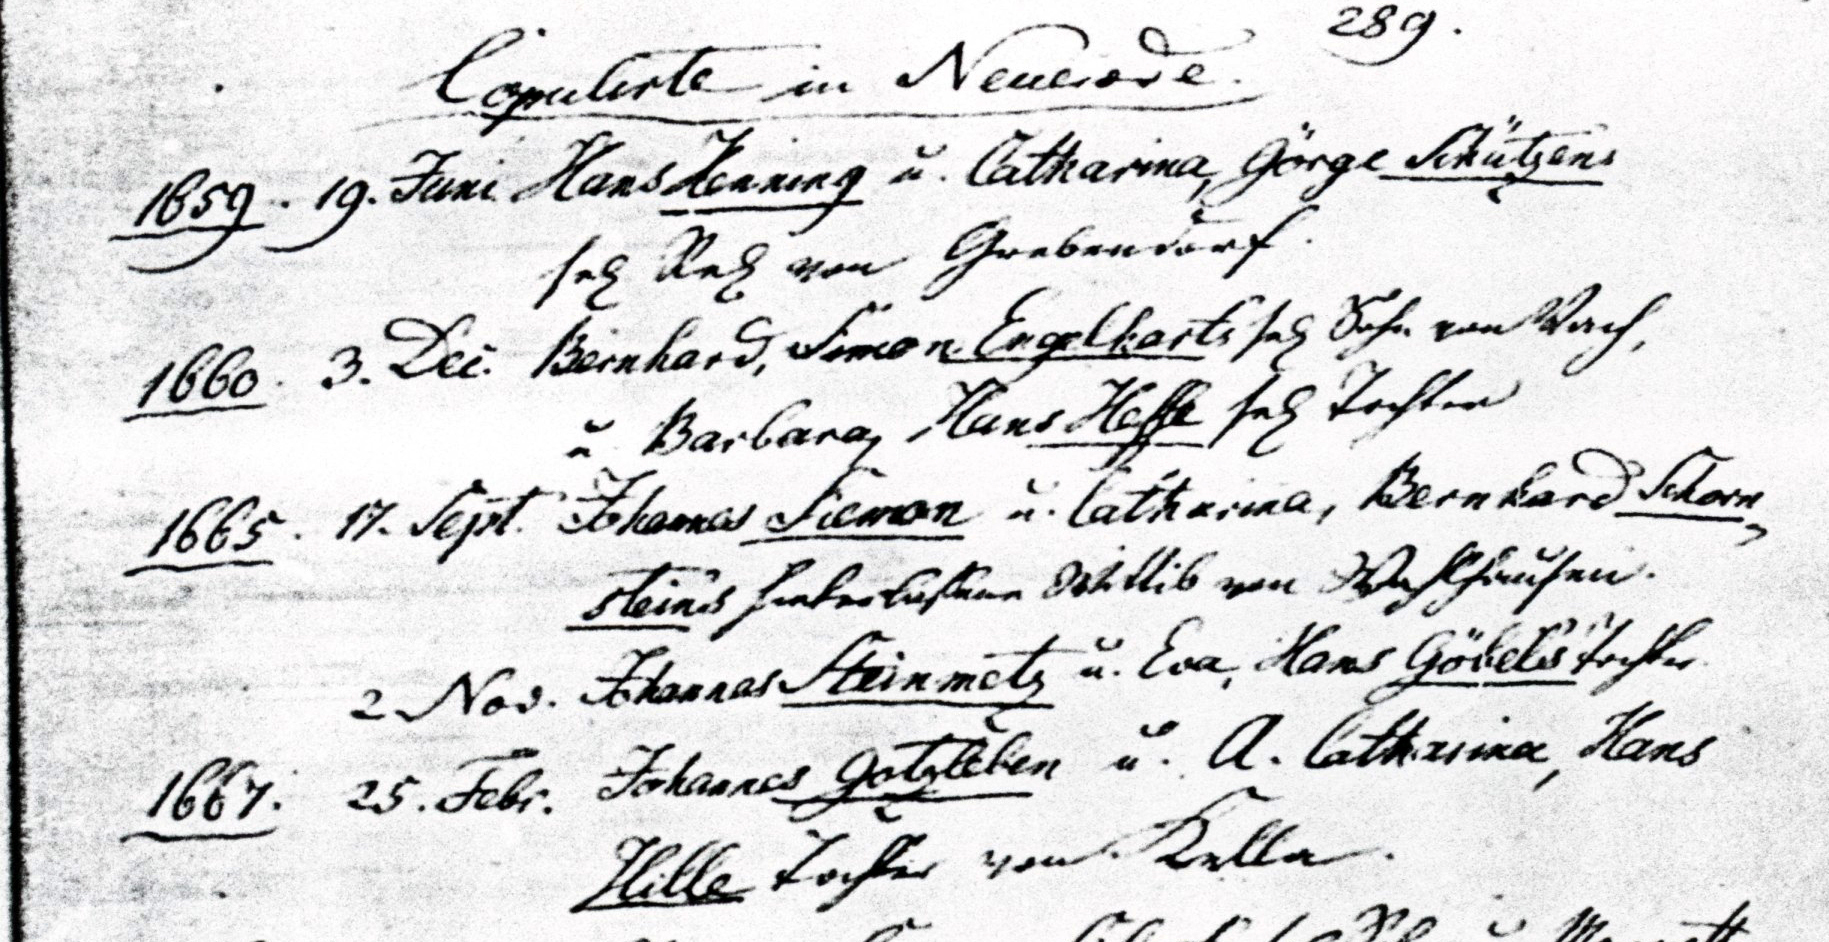 289.
Copulirte in Neuerode.
1659. 19. Juni Hans Henning u. Catharina, Görge Schützens
sel. Rel. von Grebendorf.
1660. 3. Dec. Bernhard, Simon Engelharts sel. Sohn von Vach,
u Barbara, Hans Hesse sel. Tochter
1665. 17. Sept. Johannes Siemon u. Catharina, Bernhard Schorn
steins hinterlaßene Wittib von Wahlhausen.
2 Nov. Johannes Steinmetz u. Eva, Hans Göbels Tochter
1667. 25. Febr. Johannes Gotzleben u. A. Catharina, Hans
Hille Tochter von Kella.